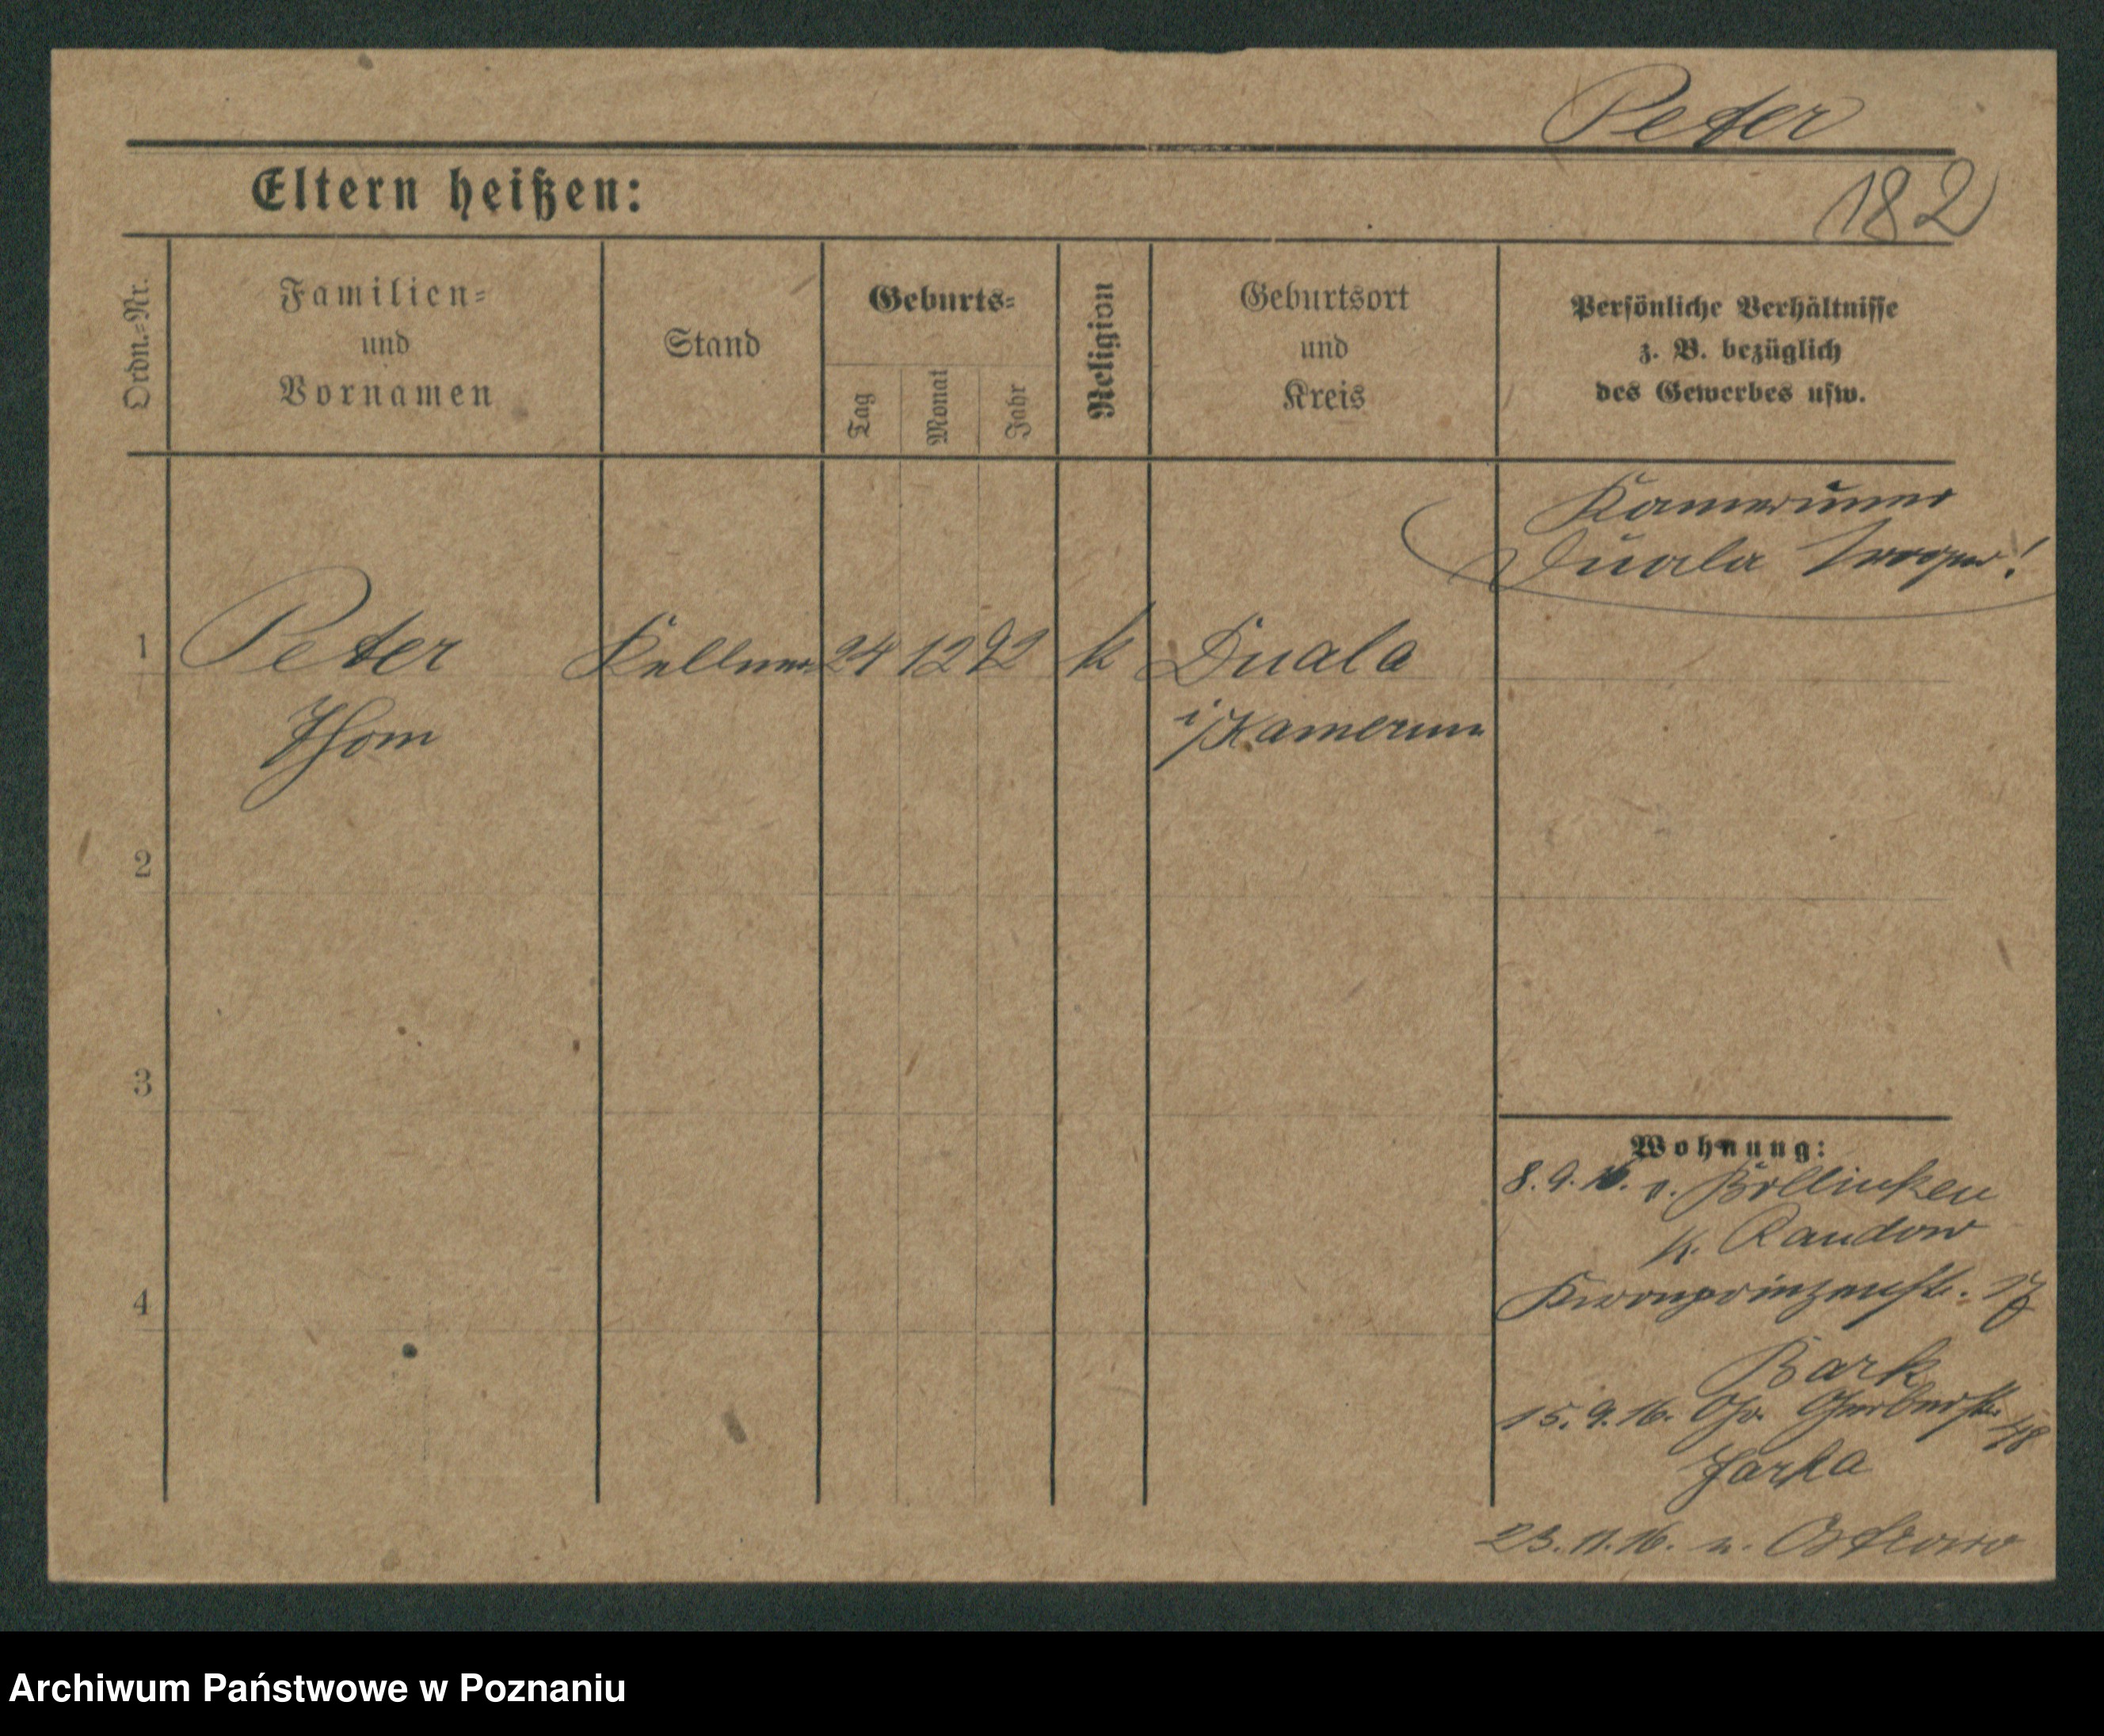 Peter
182
Eltern heißen:
Ordn.=Nr.
Familien=
und
Vornamen
Stand
Geburts=
Tag
Monat
Jahr
Religion
Geburtsort
und
Kreis
Persönliche Verhältnisse
z. B. bezüglich
des Gewerbes usw.
Kameruner
Duala
1 Peter Kellner 24 12 92 k Duala
Thom i/Kamerun
2
3
4
Wohnung:
8.9.16. v. Böllinken
K. Randow
Kronprinzenstr. 17
Bark
15.9.16. Gr. Gerberstr. 48
Jarka
23.11.16. n. Ostrowo
Archiwum Państwowe w Poznaniu